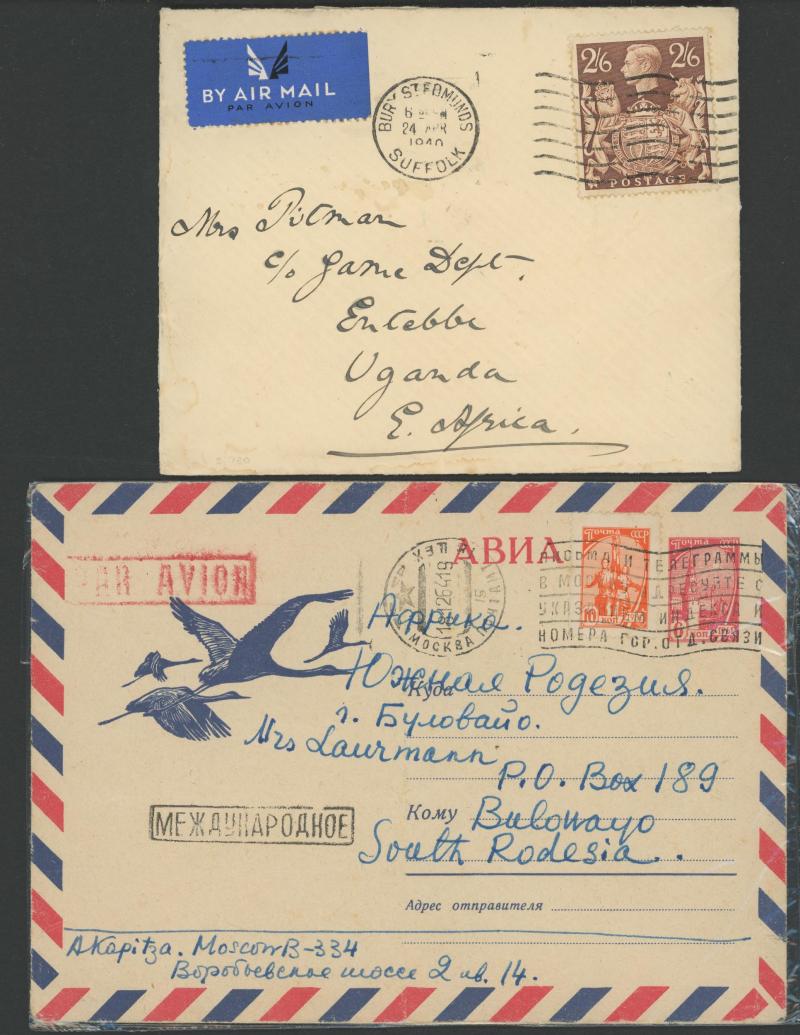 BY AIR MAIL
PAR AVION
BURY ST EDMUNDS
24 APR
1940
SUFFOLK
2/6 2/6
POSTAGE
Mrs Pitman
c/o Game Dept.
Entebbe
Uganda
E. Africa.
PAR AVION
АВИА
Почта СССР
10
коп
Почта СССР
МОСКВА
ТЕЛЕГРАММЫ
НОМЕРА ГОР. ОТД. СВЯЗИ
Африка.
Куда
Южная Родезия.
г. Буловайо.
Mrs Laurmann
P.O. Box 189
Кому
Bulowayo
МЕЖДУНАРОДНОЕ
South Rodesia..
Адрес отправителя
A Kapitza. Moscow B-334
Воробьевское шоссе 2 кв. 14.